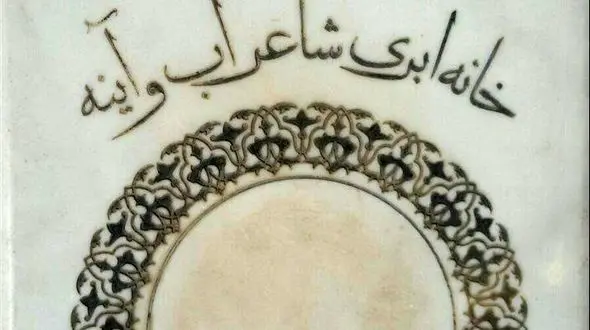 خانه ابری شاعر آب و آینه